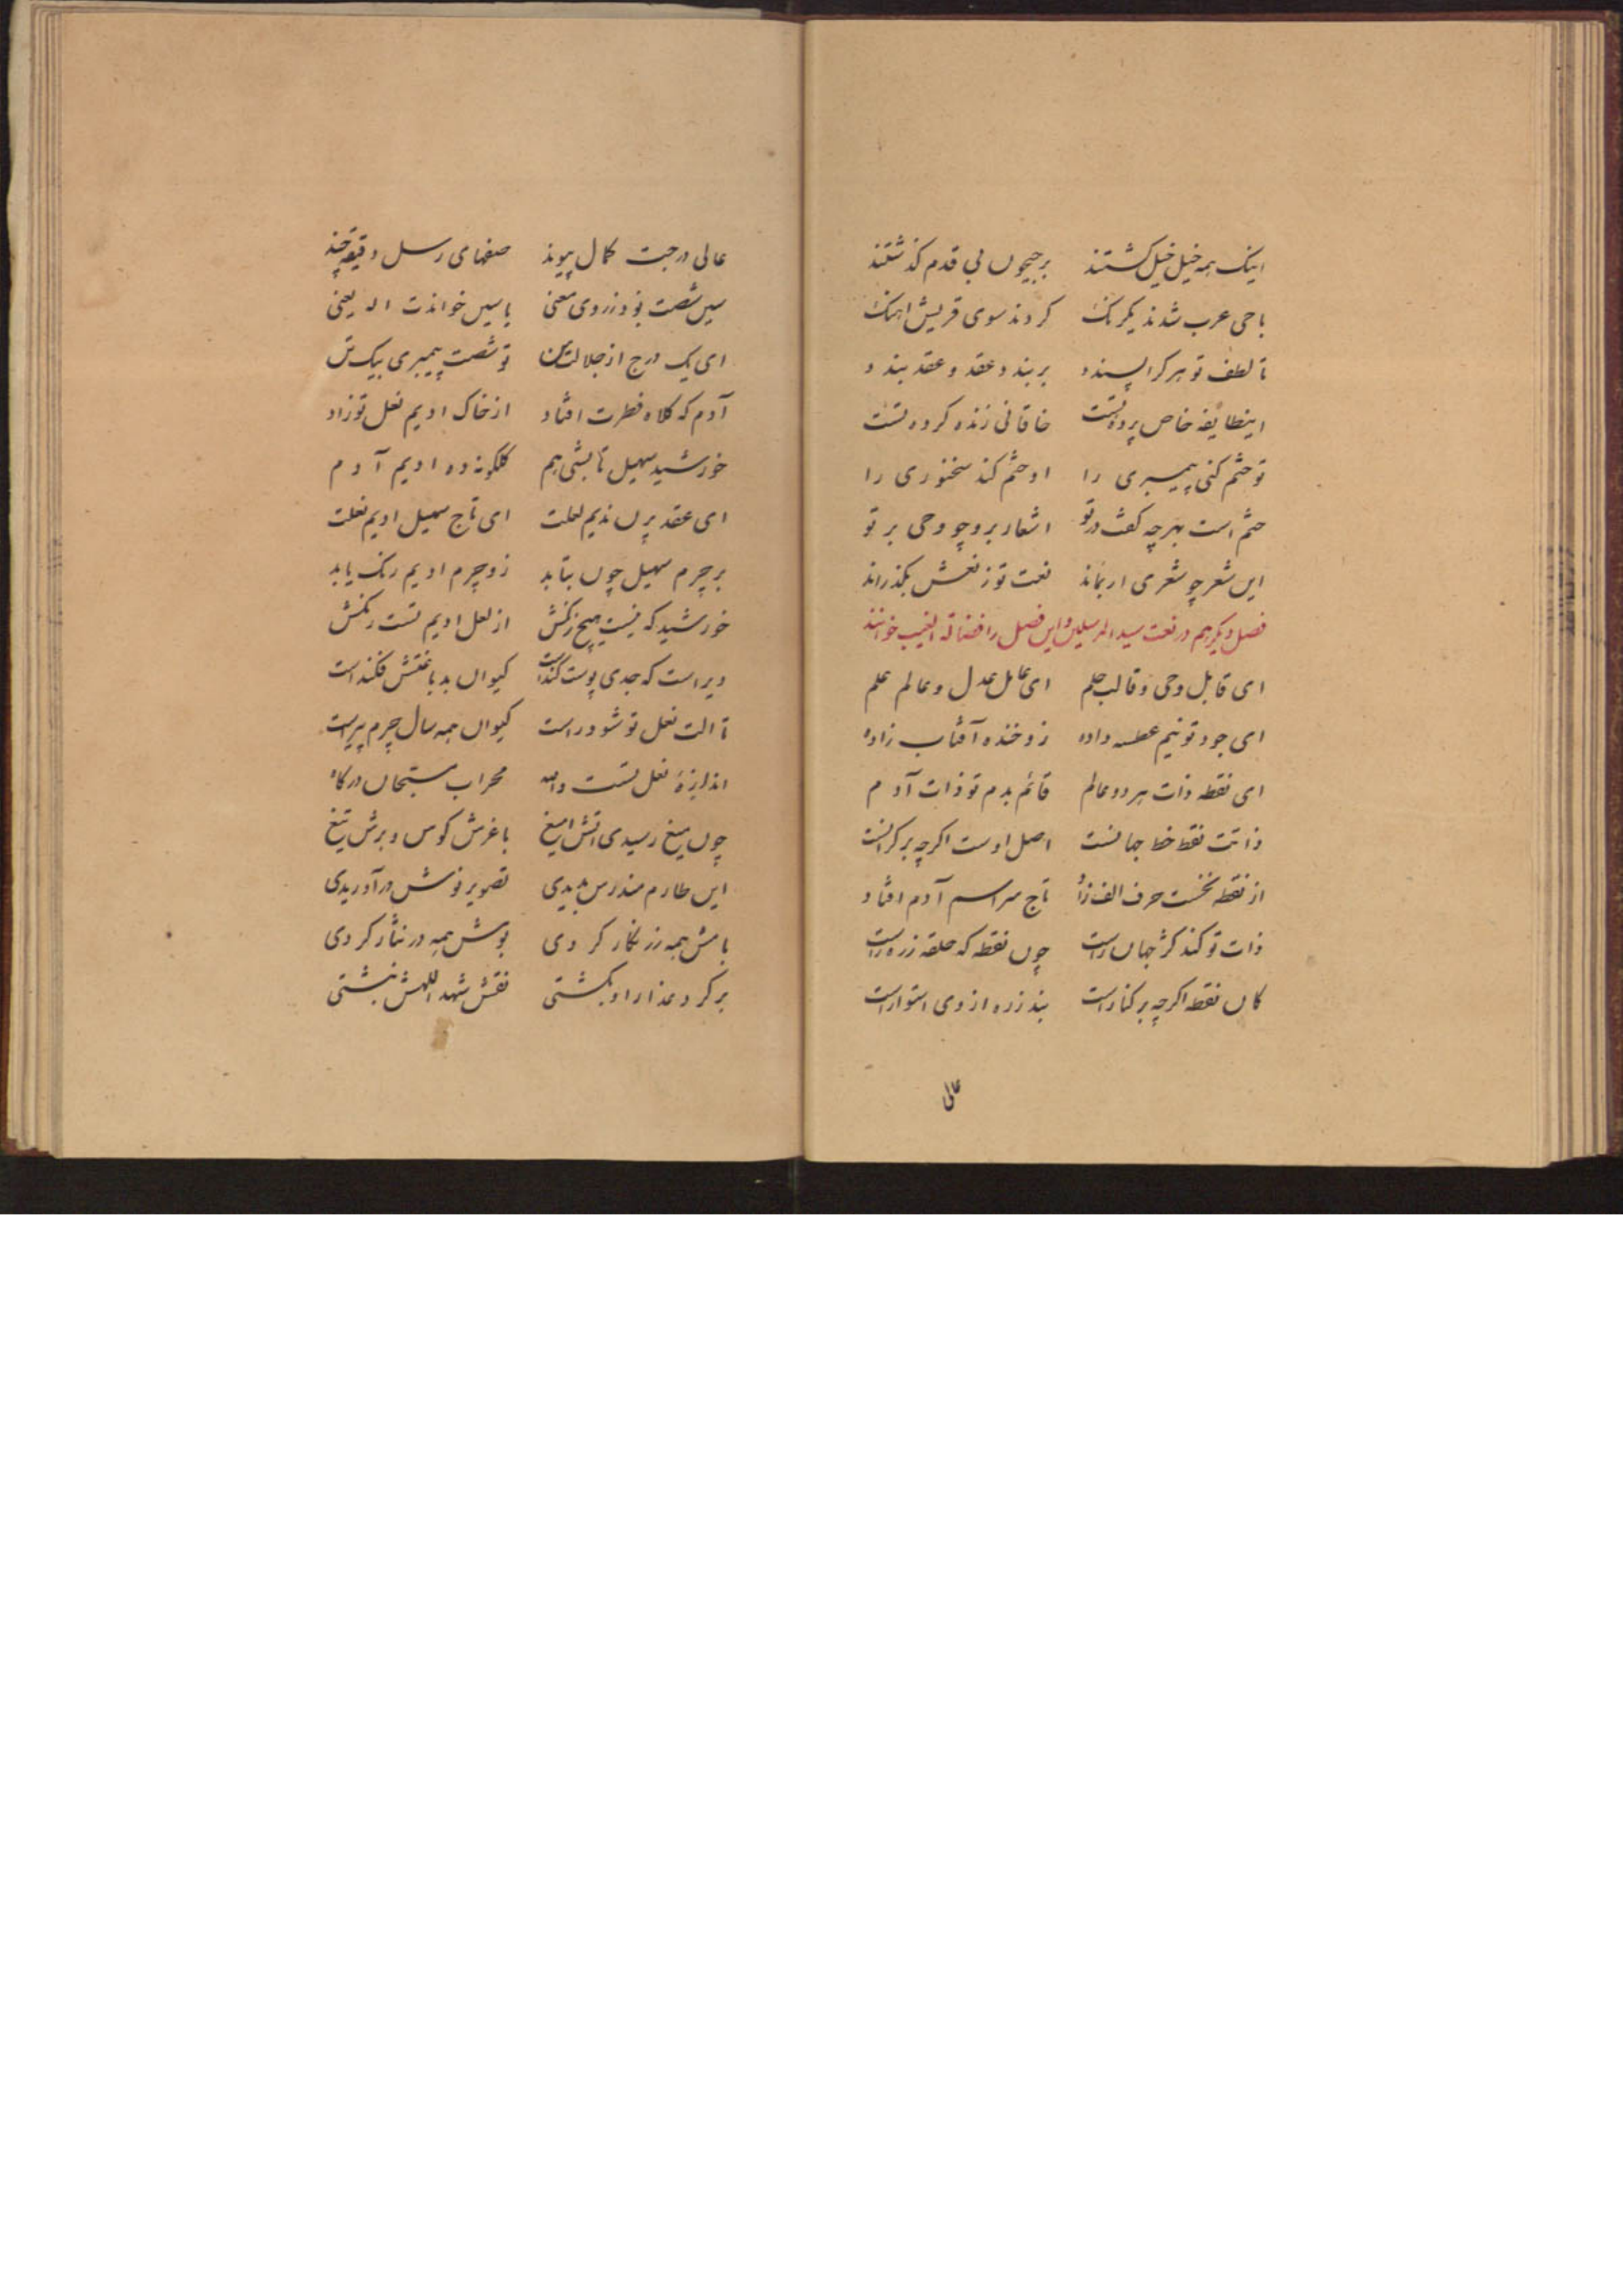 اینک همه خیل خیل کشتند برجیحون بی قدم کذشتند
با حی عرب شدند یکرنک کردند سوی قریش اهنک
تا لطف تو هر کرا پسندد بربندد عقد و عقد بندد
اینطایفه خاص پرده تست خاقانی زنده کرده تست
تو ختم کنی پیمبری را او ختم کند سخنوری را
ختم است بهرچه کفت در تو اشعار برو چو وحی بر تو
این شعر چو شعری ار بماند نعت تو ز نعش بکذراند
فصل دیکر هم در نعت سید المرسلین و این فصل را خوانند
ای قابل وحی و قالب حلم ای عامل عدل و عالم علم
ای جود تو نیم عطسه داده زو خنده آفتاب زاده
ای نقطه ذات هر دو عالم قائم بدم تو ذات آدم
ذاتت نقط خط جهانست اصل اوست اکرچه بر کرانست
از نقطه نخست حرف الف زاد تاج سر اسم آدم افتاد
ذات تو کند کژ جهان راست چون نقطه که حلقه زره راست
کان نقطه اکرچه بر کنار است بند زره از وی استوار است
عالی
عالی درجت کمال پیوند صفهای رسل دقیقه چند
سین شصت بود ز روی معنی یاسین خواندت اله یعنی
ای یک درج از جلالتت تو شصت پیمبری بیک تن
آدم که کلاه فطرت افتاد از خاک ادیم نعل تو زاد
خورشید سهیل تابشی هم کلکونه ده ادیم آدم
ای عقد پرن ندیم لعلت ای تاج سهیل ادیم نعلت
بر چرم سهیل چون بتابد زو چرم ادیم رنک یابد
خورشید که نیست هیچ رنکش از لعل ادیم تست رنکش
دیر است که جدی پوست کنداست کیوان بدباغتش فکنداست
تا الت نعل تو شود راست کیوان همه سال چرم پیراست
اندازهٔ نعل تست والله محراب مسبحان درکاه
چون میغ رسیدی اتش امیغ با غرش کوس و برش تیغ
این طارم مندرس بدیدی تصویر نوش در آوریدی
بامش همه زر نکار کردی بومش همه در نثار کردی
بر کرد عذار او بکشتی نقش شهد اللهش نبشتی